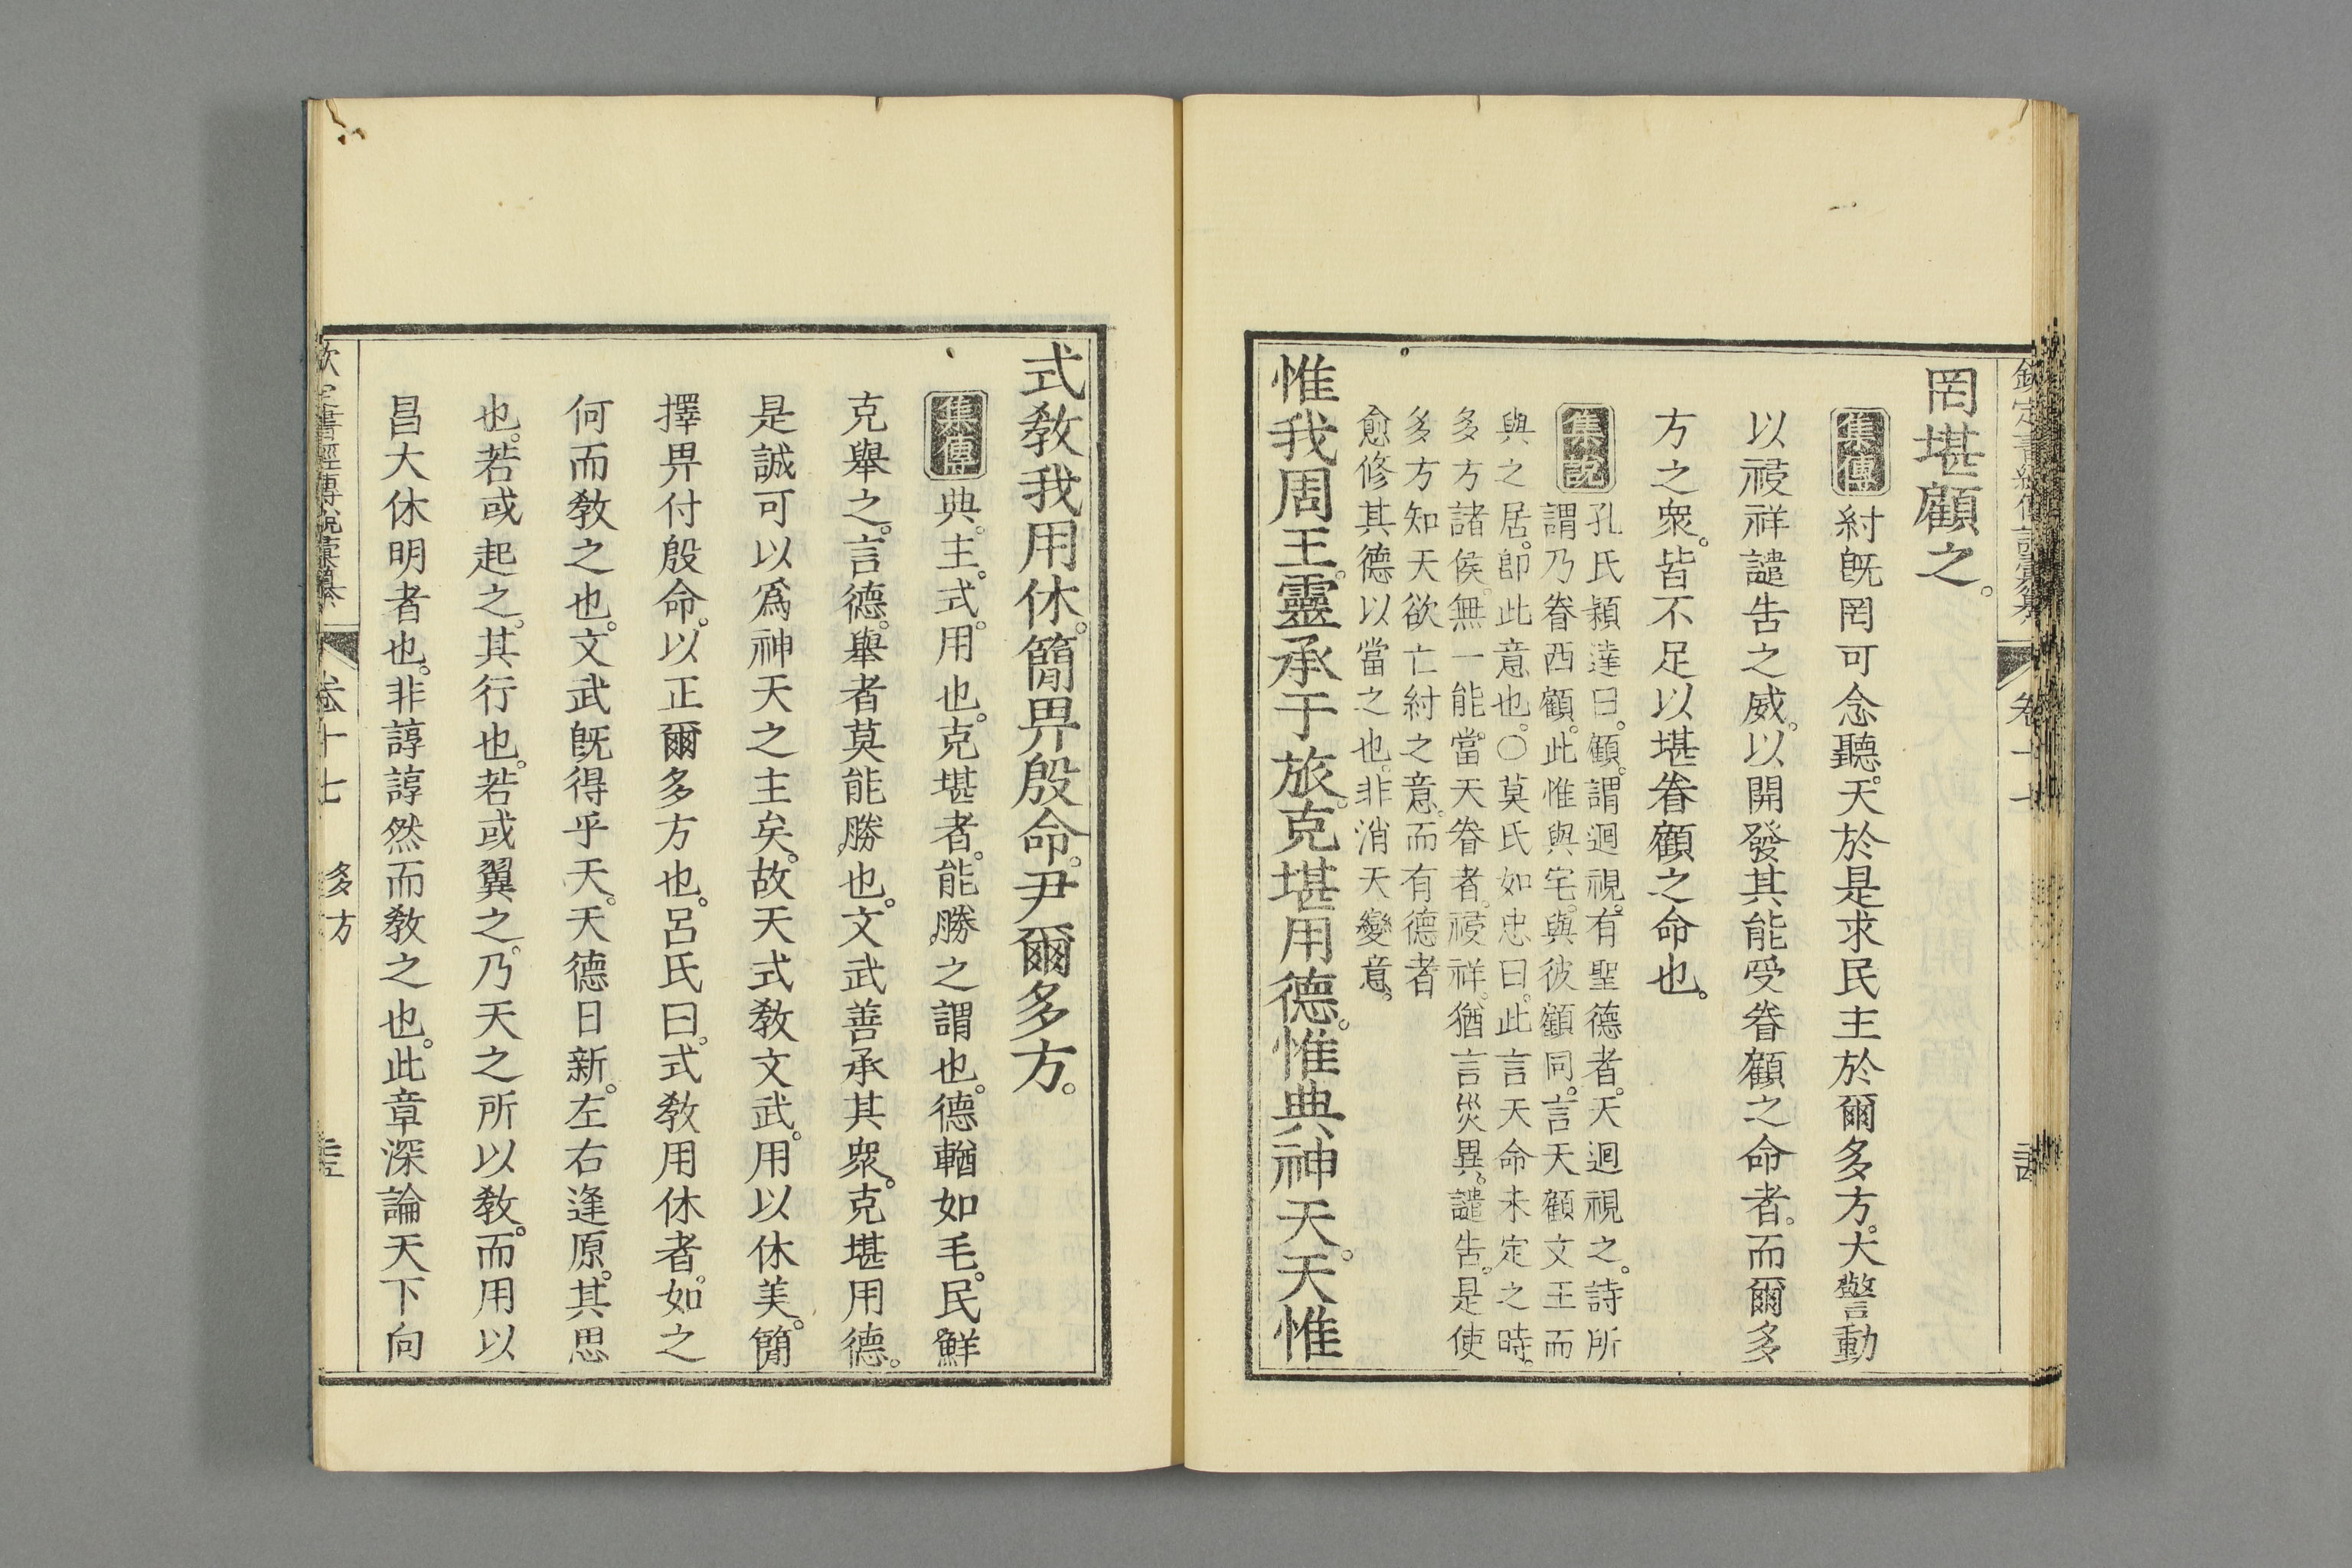 罔堪顧之。
集傳 紂旣罔可念聽。天於是求民主於爾多方。大警動
以祲祥譴告之威。以開發其能受眷顧之命者。而爾多
方之衆。皆不足以堪眷顧之命也。
集說 孔氏穎達曰。顧。謂迴視。有聖德者。天迴視之。詩所
謂乃眷西顧。此惟與宅。與彼顧同。言天顧文王而
與之居。卽此意也。○莫氏如忠曰。此言天命未定之時。
多方諸侯。無一能當天眷者。祲祥。猶言災異。譴告。是使
多方知天欲亡紂之意。而有德者
愈修其德以當之也。非消天變意。
惟我周王。靈承于旅。克堪用德。惟典神天。天惟
式敎我用休。簡畀殷命。尹爾多方。
集傳 典。主。式。用也。克堪者。能勝之謂也。德輶如毛。民鮮
克舉之。言德。舉者莫能勝也。文武善承其衆。克堪用德。
是誠可以爲神天之主矣。故天式敎文武。用以休美。簡
擇畀付殷命。以正爾多方也。呂氏曰。式敎用休者。如之
何而敎之也。文武旣得乎天。天德日新。左右逢原。其思
也。若或起之。其行也。若或翼之。乃天之所以敎。而用以
昌大休明者也。非諄諄然而敎之也。此章深論天下向
欽定書經傳說彙纂 卷十七 多方